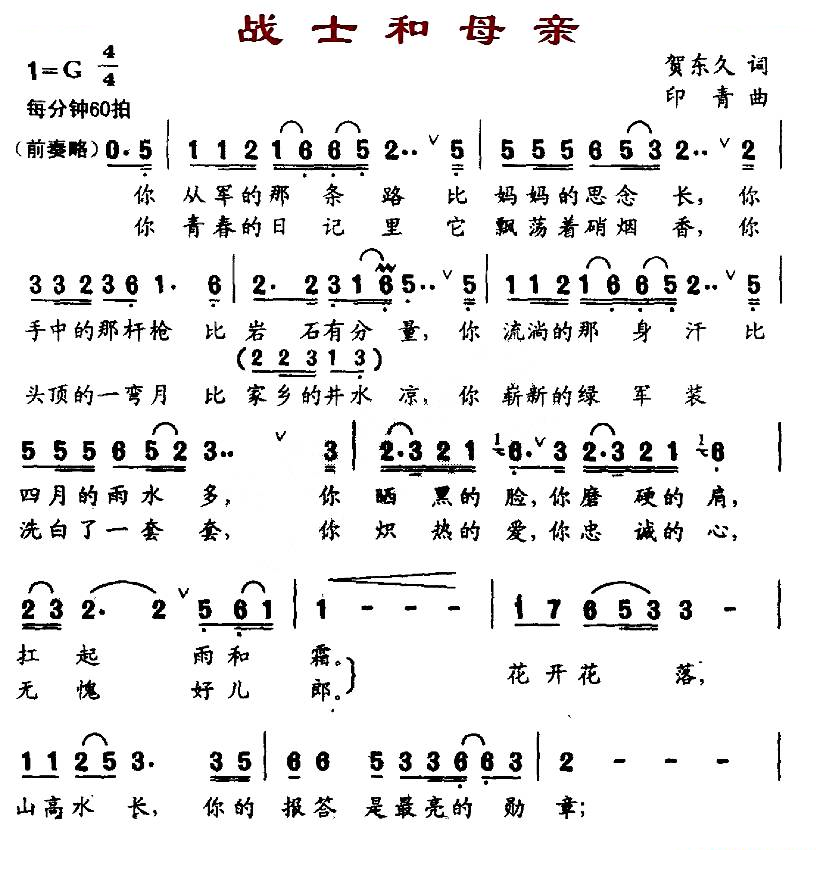 战士和母亲
1=G 4/4
贺东久 词
每分钟60拍
印青 曲
(前奏略) 0. 5 | 1 1 2 1 6 6 5 2.. ∨ 5 | 5 5 5 5 6 5 3 2.. ∨ 2
你 从军的那 条 路 比 妈妈的思念 长, 你
你 青春的日 记 里 它 飘荡着硝烟 香, 你
3 3 2 3 6 1. 6 | 2. 2 3 1 6 5.. ∨ 5 | 1 1 2 1 6 6 5 2.. ∨ 5
手中的那杆枪 比 岩 石有分 量, 你 流淌的那 身 汗 比
(2 2 3 1 3)
头顶的一弯月 比 家乡的井水 凉, 你 崭新的绿 军 装
5 5 5 6 5 2 3.. ∨ 3 | 2.3 2 1 1/6. ∨ 3 2.3 2 1 1/6
四月的雨水 多, 你 晒 黑的 脸, 你磨 硬的 肩,
洗白了一套 套, 你 炽 热的 爱, 你忠 诚的 心,
2 3 2. 2 ∨ 5 6 1 | 1 - - - | 1 7 6 5 3 3 -
扛 起 雨和 霜。
花开花 落,
无 愧 好儿 郎。
1 1 2 5 3. 3 5 | 6 6 5 3 3 6 6 3 | 2 - - - |
山高水 长, 你的 报答 是最亮的 勋 章;